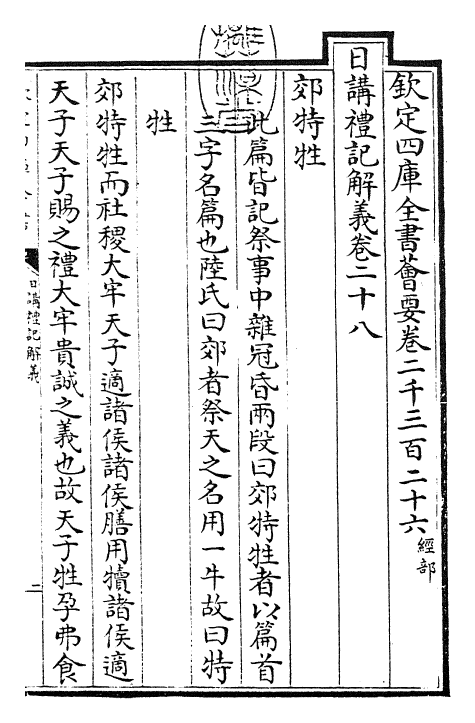 欽定四庫全書薈要卷二千三百二十六經部
日講禮記解義卷二十八
郊特牲
此篇皆記祭事中雜冠昏兩段曰郊特牲者以篇首
三字名篇也陸氏曰郊者祭天之名用一牛故曰特
牲
郊特牲而社稷大牢天子適諸侯諸侯膳用犢諸侯適
天子天子賜之禮大牢貴誠之義也故天子牲孕弗食
日講禮記解義